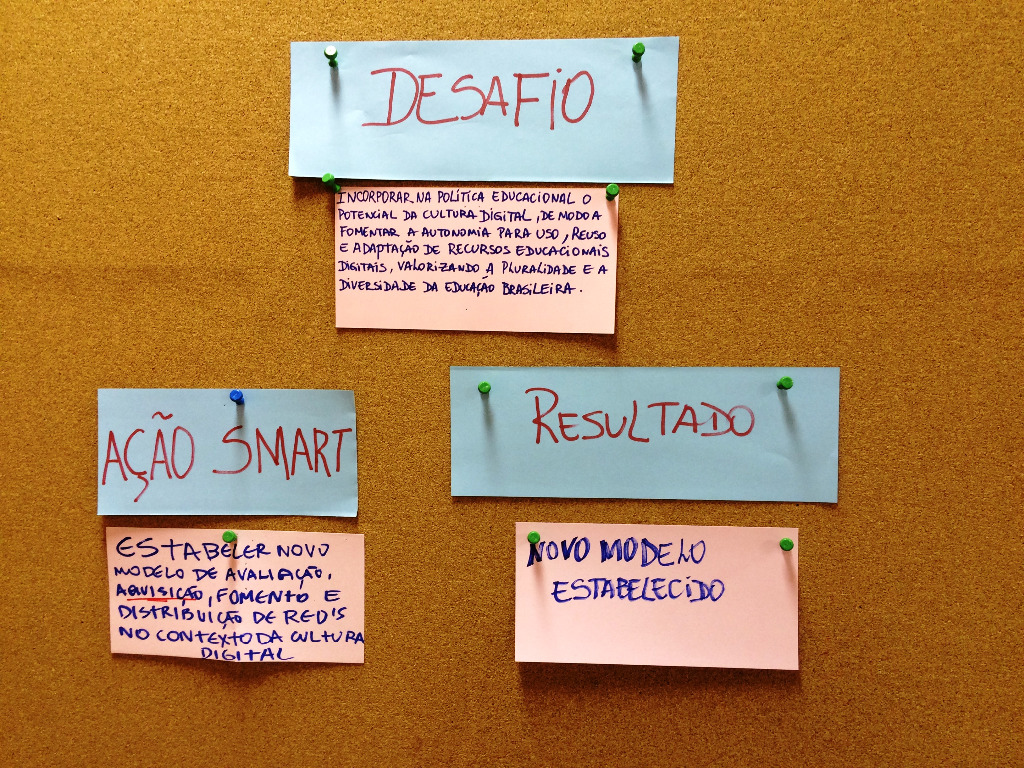 DESAFIO
INCORPORAR NA POLÍTICA EDUCACIONAL O
POTENCIAL DA CULTURA DIGITAL, DE MODO A
FOMENTAR A AUTONOMIA PARA USO, REUSO
E ADAPTAÇÃO DE RECURSOS EDUCACIONAIS
DIGITAIS, VALORIZANDO A PLURALIDADE E A
DIVERSIDADE DA EDUCAÇÃO BRASILEIRA.
AÇÃO SMART
ESTABELER NOVO
MODELO DE AVALIAÇÃO,
AQUISIÇÃO, FOMENTO E
DISTRIBUIÇÃO DE RED'S
NO CONTEXTO DA CULTURA
DIGITAL
RESULTADO
NOVO MODELO
ESTABELECIDO